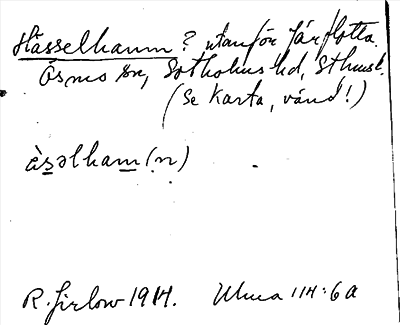 Hässelhamn? utanför Järflotta.
Ösmo sn, Sotholms hd, Sthmsl.
(Se Karta, vänd!)
àsəlham(n)
R. Jirlow 1914. Ulma 114:6 a